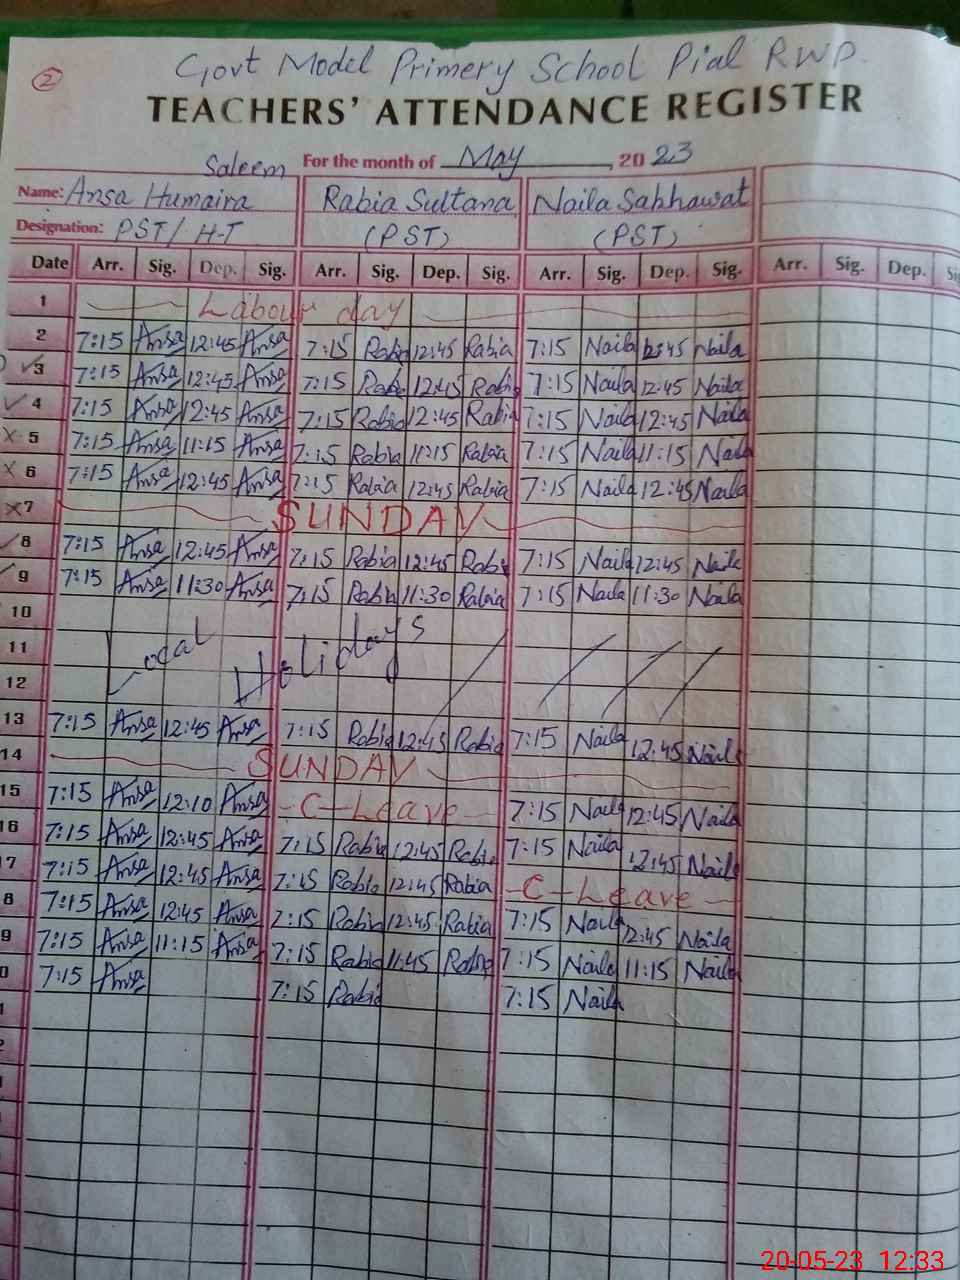 2
Govt Model Primery School Pial RWP.
TEACHERS' ATTENDANCE REGISTER
For the month of May, 2023
Saleem
Name: Ansa Humaira Rabia Sultana Naila Sakhawat
Designation: PST/H-T (PST) (PST)
Date Arr. Sig. Dep. Sig. Arr. Sig. Dep. Sig. Arr. Sig. Dep. Sig. Arr. Sig. Dep. Sig
1 Labour day
2 7:15 Ansa 12:45 Ansa 7:15 Rabia 12:45 Rabia 7:15 Naila 12:45 Naila
3 7:15 Ansa 12:45 Ansa 7:15 Rabia 12:45 Rabia 7:15 Naila 12:45 Naila
4 7:15 Ansa 12:45 Ansa 7:15 Rabia 12:45 Rabia 7:15 Naila 12:45 Naila
5 7:15 Ansa 11:15 Ansa 7:15 Rabia 11:15 Rabia 7:15 Naila 11:15 Naila
6 7:15 Ansa 12:45 Ansa 7:15 Rabia 12:45 Rabia 7:15 Naila 12:45 Naila
7 SUNDAY
8 7:15 Ansa 12:45 Ansa 7:15 Rabia 12:45 Rabia 7:15 Naila 12:45 Naila
9 7:15 Ansa 11:30 Ansa 7:15 Rabia 11:30 Rabia 7:15 Naila 11:30 Naila
10
11 Local Holidays
12
13 7:15 Ansa 12:45 Ansa 7:15 Rabia 12:45 Rabia 7:15 Naila 12:45 Naila
14 SUNDAY
15 7:15 Ansa 12:10 Ansa -C-Leave- 7:15 Naila 12:45 Naila
16 7:15 Ansa 12:45 Ansa 7:15 Rabia 12:45 Rabia 7:15 Naila 12:45 Naila
17 7:15 Ansa 12:45 Ansa 7:15 Rabia 12:45 Rabia -C-Leave-
8 7:15 Ansa 12:45 Ansa 7:15 Rabia 12:45 Rabia 7:15 Naila 12:45 Naila
9 7:15 Ansa 11:15 Ansa 7:15 Rabia 11:45 Rabia 7:15 Naila 11:15 Naila
0 7:15 Ansa 7:15 Rabia 7:15 Naila
1
2
20-05-23 12:33